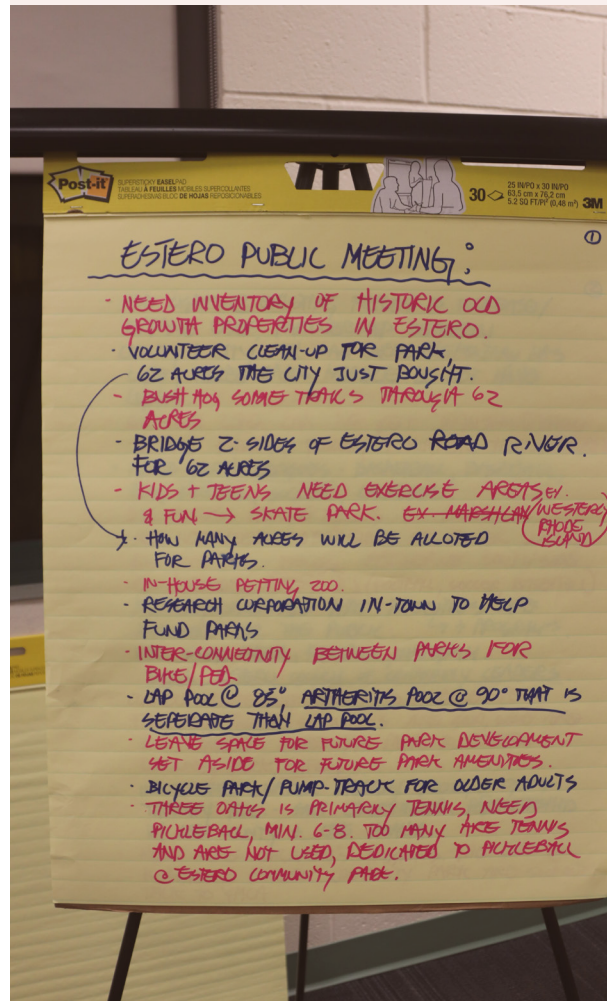 Post-it
SUPERSTICKY EASEL PAD
TABLEAU À FEUILLES MOBILES SUPERCOLLANTES
SUPERADHESIVAS BLOC DE HOJAS REPOSICIONABLES
30
25 IN/PO x 30 IN/PO
63,5 cm x 76,2 cm
5.2 SQ FT/PI² (0,48 m²)
3M
1
ESTERO PUBLIC MEETING:
- NEED INVENTORY OF HISTORIC OLD
GROWTH PROPERTIES IN ESTERO.
- VOLUNTEER CLEAN-UP FOR PARK,
62 ACRES THE CITY JUST BOUGHT.
- BUSH HOG SOME TRAILS THROUGH 62
ACRES
- BRIDGE 2-SIDES OF ESTERO ROAD RIVER.
FOR 62 ACRES
- KIDS + TEENS NEED EXERCISE AREAS EX.
& FUN → SKATE PARK. EX WESTERLY
RHODE
ISLAND
- HOW MANY ACRES WILL BE ALLOTED
FOR PARKS.
- IN-HOUSE PETTING ZOO.
- RESEARCH CORPORATION IN-TOWN TO HELP
FUND PARKS
- INTER-CONNECTIVITY BETWEEN PARKS FOR
BIKE/PED.
- LAP POOL @ 83°, ARTHERITIS POOL @ 90° THAT IS
SEPERATE THAN LAP POOL.
- LEAVE SPACE FOR FUTURE PARK DEVELOPMENT
SET ASIDE FOR FUTURE PARK AMENITIES.
- BICYCLE PARK/PUMP-TRACK FOR OLDER ADULTS
- THREE OAKS IS PRIMARLY TENNIS, NEED
PICKLEBALL, MIN. 6-8. TOO MANY ARE TENNIS
AND ARE NOT USED, DEDICATED TO PICKLEBALL
@ ESTERO COMMUNITY PARK.